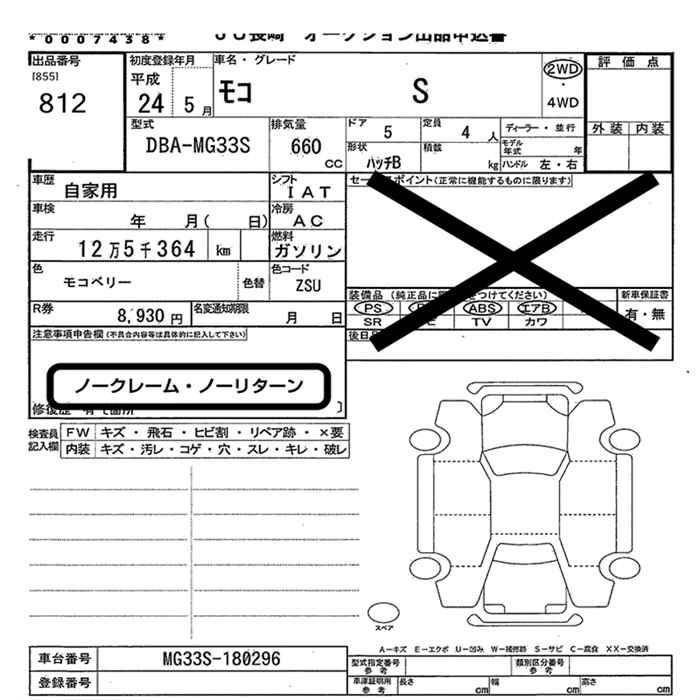 *0007438*
JU長崎 オークション出品申込書
出品番号
[855]
812
初度登録年月
平成
24 5月
車名・グレード
モコ S
2WD
・
4WD
評価点
外装 内装
型式
DBA-MG33S
排気量
660
CC
ドア 5
定員 4 人
ディーラー・並行
形状
ハッチB
積載
kg
モデル年式 年
ハンドル 左・右
車歴 自家用
シフト
IAT
車検 年 月( 日)
冷房
AC
走行 12万5千364 km
燃料
ガソリン
色
モコベリー
色替
色コード
ZSU
R券 8,930円
名変通知期限 月 日
セールスポイント(正常に機能するものに限ります)
装備品 (純正品に
をつけてください)
新車保証書
有・無
PS ABS エアB
SR TV カワ
後日
注意事項申告欄 (不具合内容等は具体的に記入して下さい)
ノークレーム・ノーリターン
修復歴 有 箇所
検査員記入欄
FW キズ・飛石・ヒビ割・リペア跡・×要
内装 キズ・汚レ・コゲ・穴・スレ・キレ・破レ
スペア
A-キズ E-エクボ U-凹み W-補修跡 S-サビ C-腐食 XX-交換済
車台番号 MG33S-180296
登録番号
型式指定番号
参考
類別区分番号
参考
車庫証明用
参考
長さ cm
幅 cm
高さ cm